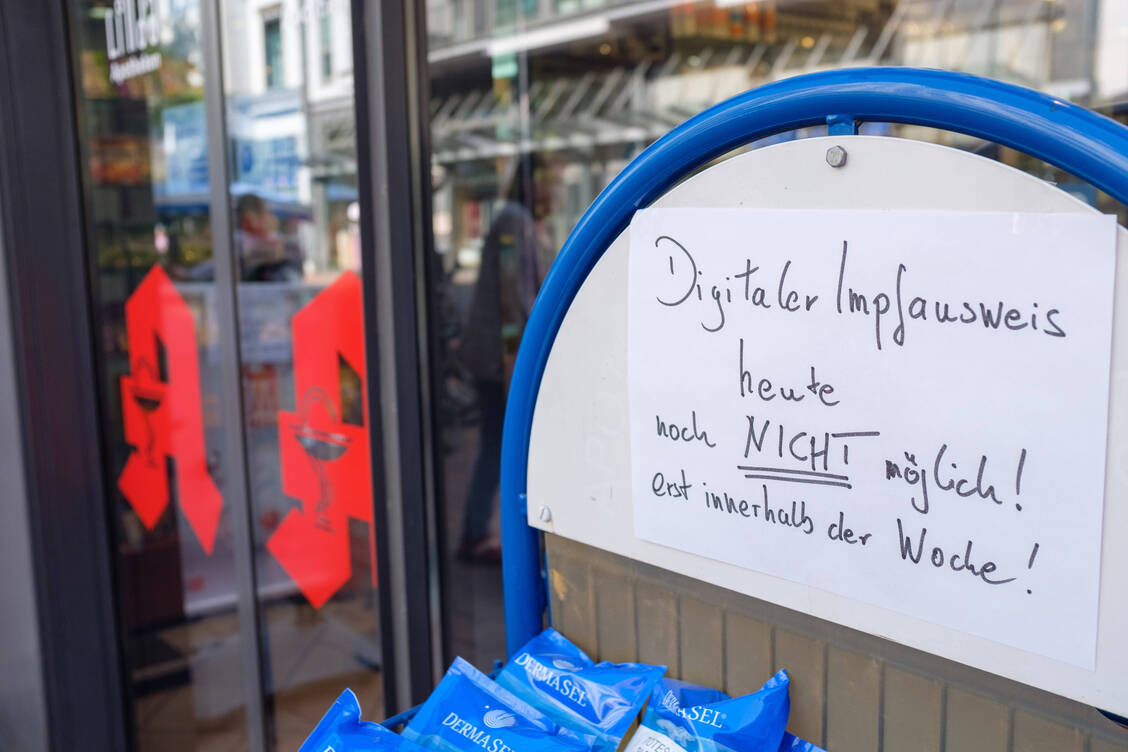 Apotheken
Digitaler Impfausweis
heute
noch NICHT möglich!
erst innerhalb der Woche!
DERMASEL
DERMASEL
DERMASEL